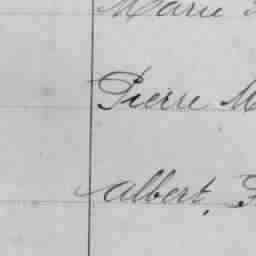 Marie
Pierre M
Albert,